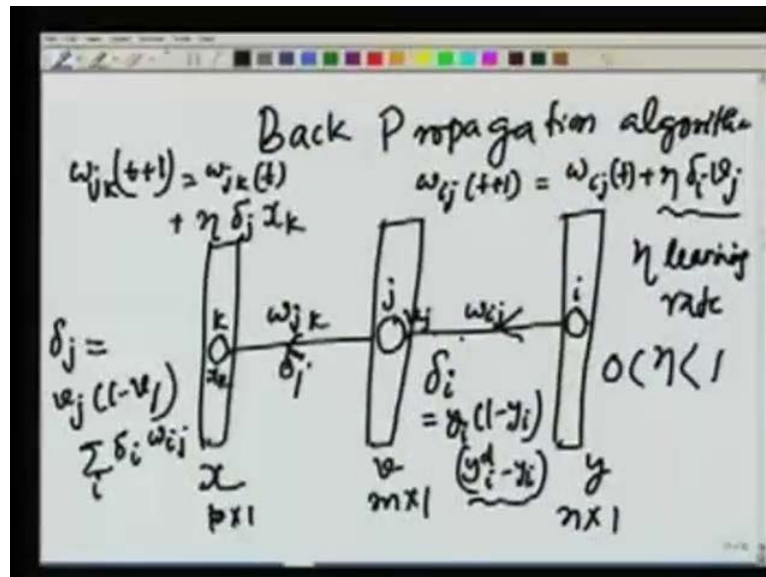 Back Propagation algorithm
ω_jk(t+1) = ω_jk(t)
+ η δ_j x_k
ω_ij(t+1) = ω_ij(t) + η δ_i v_j
η learning
rate
0 < η < 1
k
x_k
ω_jk
δ_j
j
v_j
ω_ij
i
δ_j =
v_j (1-v_j)
Σ_i δ_i ω_ij
δ_i
= y_i (1-y_i)
(y_i^d - y_i)
x
p×1
v
m×1
y
n×1